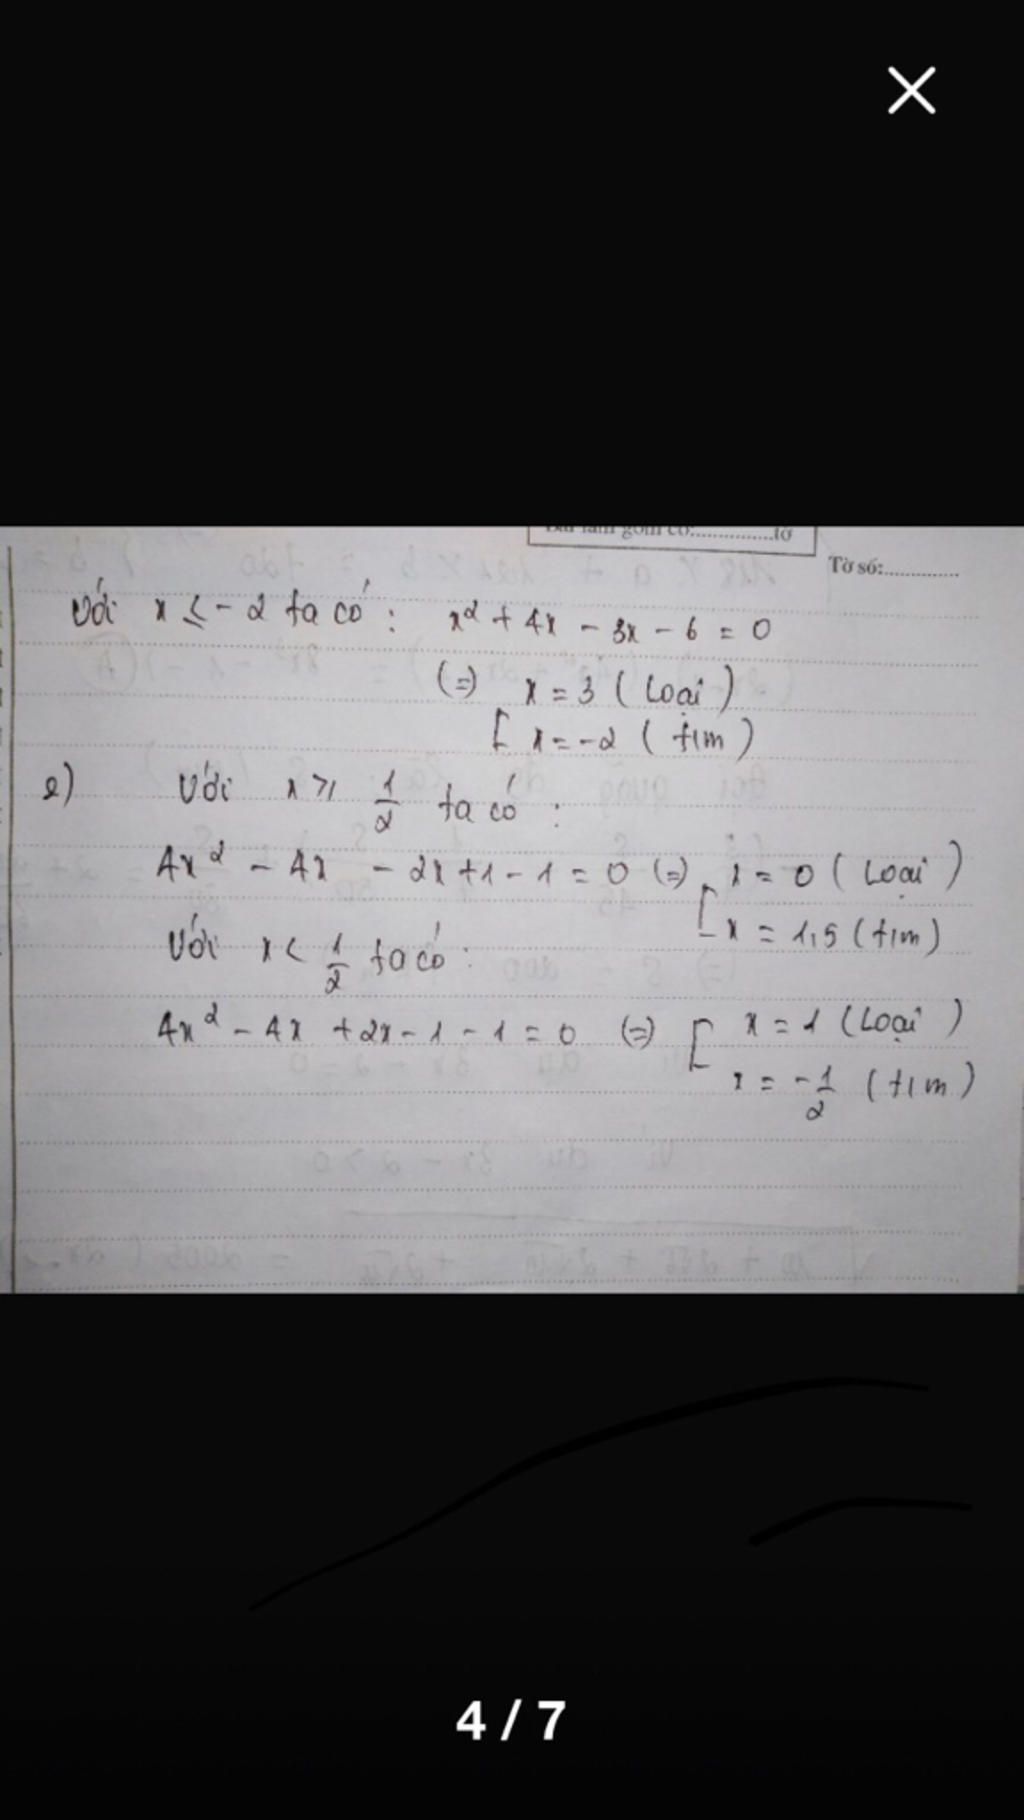 Bài làm gồm có:...............tờ
Tờ số:.............
Với x ≤ -2 ta có: x² + 4x - 3x - 6 = 0
(=) [ x = 3 (Loại)
x = -2 (t/m)
e) Với x ≥ 1/2 ta có:
4x² - 4x - 2x + 1 - 1 = 0 (=) [ x = 0 (Loại)
x = 1,5 (t/m)
Với x < 1/2 ta có:
4x² - 4x + 2x - 1 - 1 = 0 (=) [ x = 1 (Loại)
x = -1/2 (t/m)
4 / 7